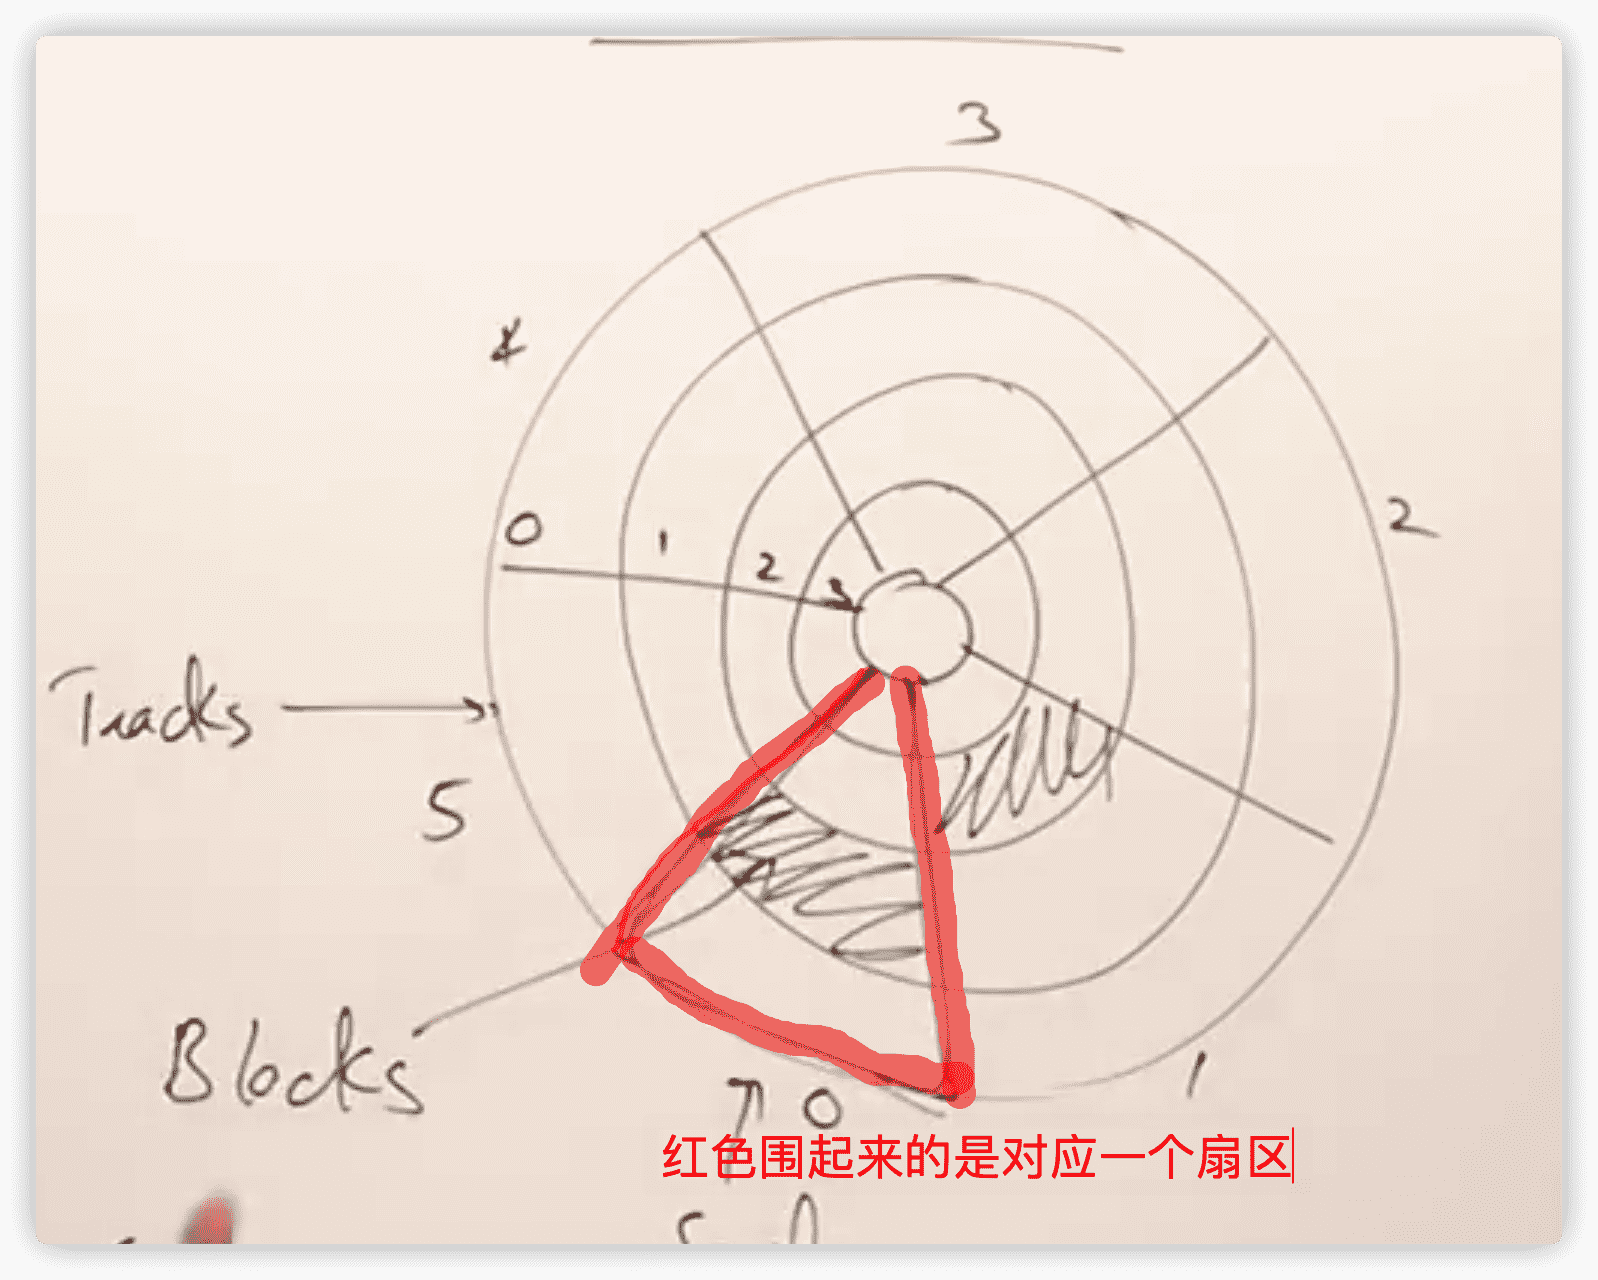 3
4
2
0
1
2
Tracks
5
Blocks
0
1
红色围起来的是对应一个扇区